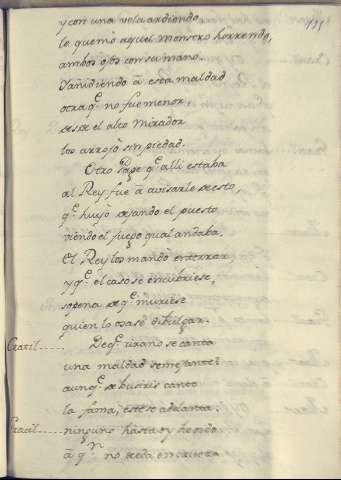 135
y con una vela ardiendo
le quemò aquel monstro horrendo,
ambos ojos con su mano.
Y añidiendo à esta maldad
otra q.ᵉ no fue menor,
desde el alto mirador
los arrojò sin piedad.
Otro Page q.ᵉ alli estaba
al Rey fue à avisarle desto,
q.ᵉ huyò dejando el puesto
viendo el fuego qual andaba.
El Rey los mandò enterrar
y q.ᵉ el caso se encubriese,
sopena de q.ᵉ muriese
quien lo osase dibulgar.
Cratil...... De q.ᵉ tirano se canta
una maldad semejante?
aunq.ᵉ de busiris cante
la fama, este se adelanta.
Cracil...... ninguno hasta oy ha sido
à q.ⁿ no zeda en crueza